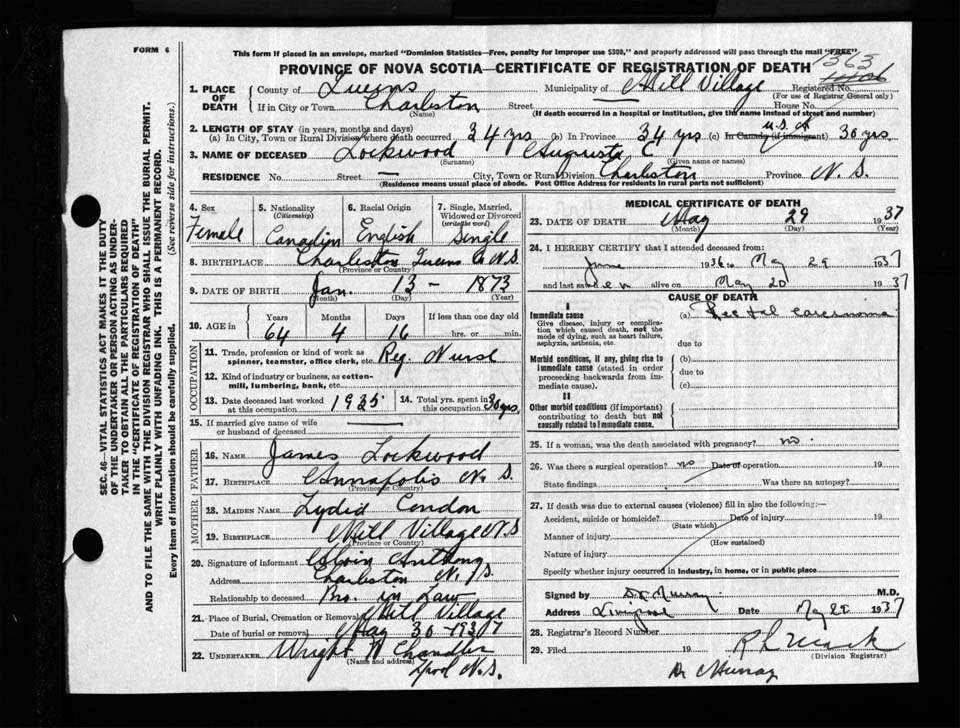 FORM 6
This form if placed in an envelope, marked "Dominion Statistics—Free, penalty for improper use $300," and properly addressed will pass through the mail "FREE"
PROVINCE OF NOVA SCOTIA—CERTIFICATE OF REGISTRATION OF DEATH
1363
1. PLACE OF DEATH
County of Queens Municipality of Mill Village Registered No.
(For use of Registrar General only)
If in City or Town Charleston Street House No.
(Name) (If death occurred in a hospital or institution, give the name instead of street and number)
2. LENGTH OF STAY (in years, months and days)
(a) In City, Town or Rural Division where death occurred 34 yrs (b) In Province 34 yrs (c) In Canada (if immigrant) U.S.A 30 yrs.
3. NAME OF DECEASED Lockwood Augusta C
(Surname) (Given name or names)
RESIDENCE No. Street — City, Town or Rural Division Charleston Province N. S.
(Residence means usual place of abode. Post Office Address for residents in rural parts not sufficient)
4. Sex Female
5. Nationality (Citizenship) Canadian
6. Racial Origin English
7. Single, Married, Widowed or Divorced (write the word) Single
8. BIRTHPLACE Charleston Queens Co N.S
(Province or Country)
9. DATE OF BIRTH Jan. 13 – 1873
(Month) (Day) (Year)
10. AGE in Years Months Days If less than one day old
64 4 16 hrs. or min.
OCCUPATION
11. Trade, profession or kind of work as spinner, teamster, office clerk, etc. Reg. Nurse
12. Kind of industry or business, as cotton-mill, lumbering, bank, etc.
13. Date deceased last worked at this occupation 1935
14. Total yrs. spent in this occupation 30 yrs.
15. If married give name of wife or husband of deceased —
FATHER
16. NAME James Lockwood
17. BIRTHPLACE Annapolis N. S.
(Province or Country)
MOTHER
18. MAIDEN NAME Lydia Condon
19. BIRTHPLACE Mill Village N.S
(Province or Country)
20. Signature of informant Calvin Anthony
Address Charleston N. S.
Relationship to deceased Bro. in Law
21. Place of Burial, Cremation or Removal Mill Village
Date of burial or removal May 30 1937
22. UNDERTAKER Wright W Chandler
(Name and address)
Lpool N.S.
MEDICAL CERTIFICATE OF DEATH
23. DATE OF DEATH May 29 1937
(Month) (Day)
24. I HEREBY CERTIFY that I attended deceased from:
June 1936 to May 29 1937
and last saw her alive on May 20 1937
CAUSE OF DEATH
I
Immediate cause (a) Rectal carcinoma
Give disease, injury or complication which caused death, not the mode of dying, such as heart failure, asphyxia, asthenia, etc.
due to
Morbid conditions, if any, giving rise to immediate cause (stated in order proceeding backwards from immediate cause).
(b)
due to
(c)
II
Other morbid conditions (if important) contributing to death but not causally related to immediate cause.
25. If a woman, was the death associated with pregnancy? no.
26. Was there a surgical operation? no Date of operation 19
State findings Was there an autopsy?
27. If death was due to external causes (violence) fill in also the following:—
Accident, suicide or homicide? Date of injury 19
(State which)
Manner of injury
(How sustained)
Nature of injury
Specify whether injury occurred in industry, in home, or in public place
Signed by Murray M.D.
Address Liverpool Date May 29 1937
28. Registrar's Record Number
29. Filed 19
(Division Registrar)
Dr Murray
SEC. 46—VITAL STATISTICS ACT MAKES IT THE DUTY
OF THE UNDERTAKER OR PERSON ACTING AS UNDERTAKER TO OBTAIN ALL THE PARTICULARS REQUIRED
IN THE "CERTIFICATE OF REGISTRATION OF DEATH"
AND TO FILE THE SAME WITH THE DIVISION REGISTRAR WHO SHALL ISSUE THE BURIAL PERMIT.
WRITE PLAINLY WITH UNFADING INK. THIS IS A PERMANENT RECORD.
Every item of information should be carefully supplied. (See reverse side for instructions.)